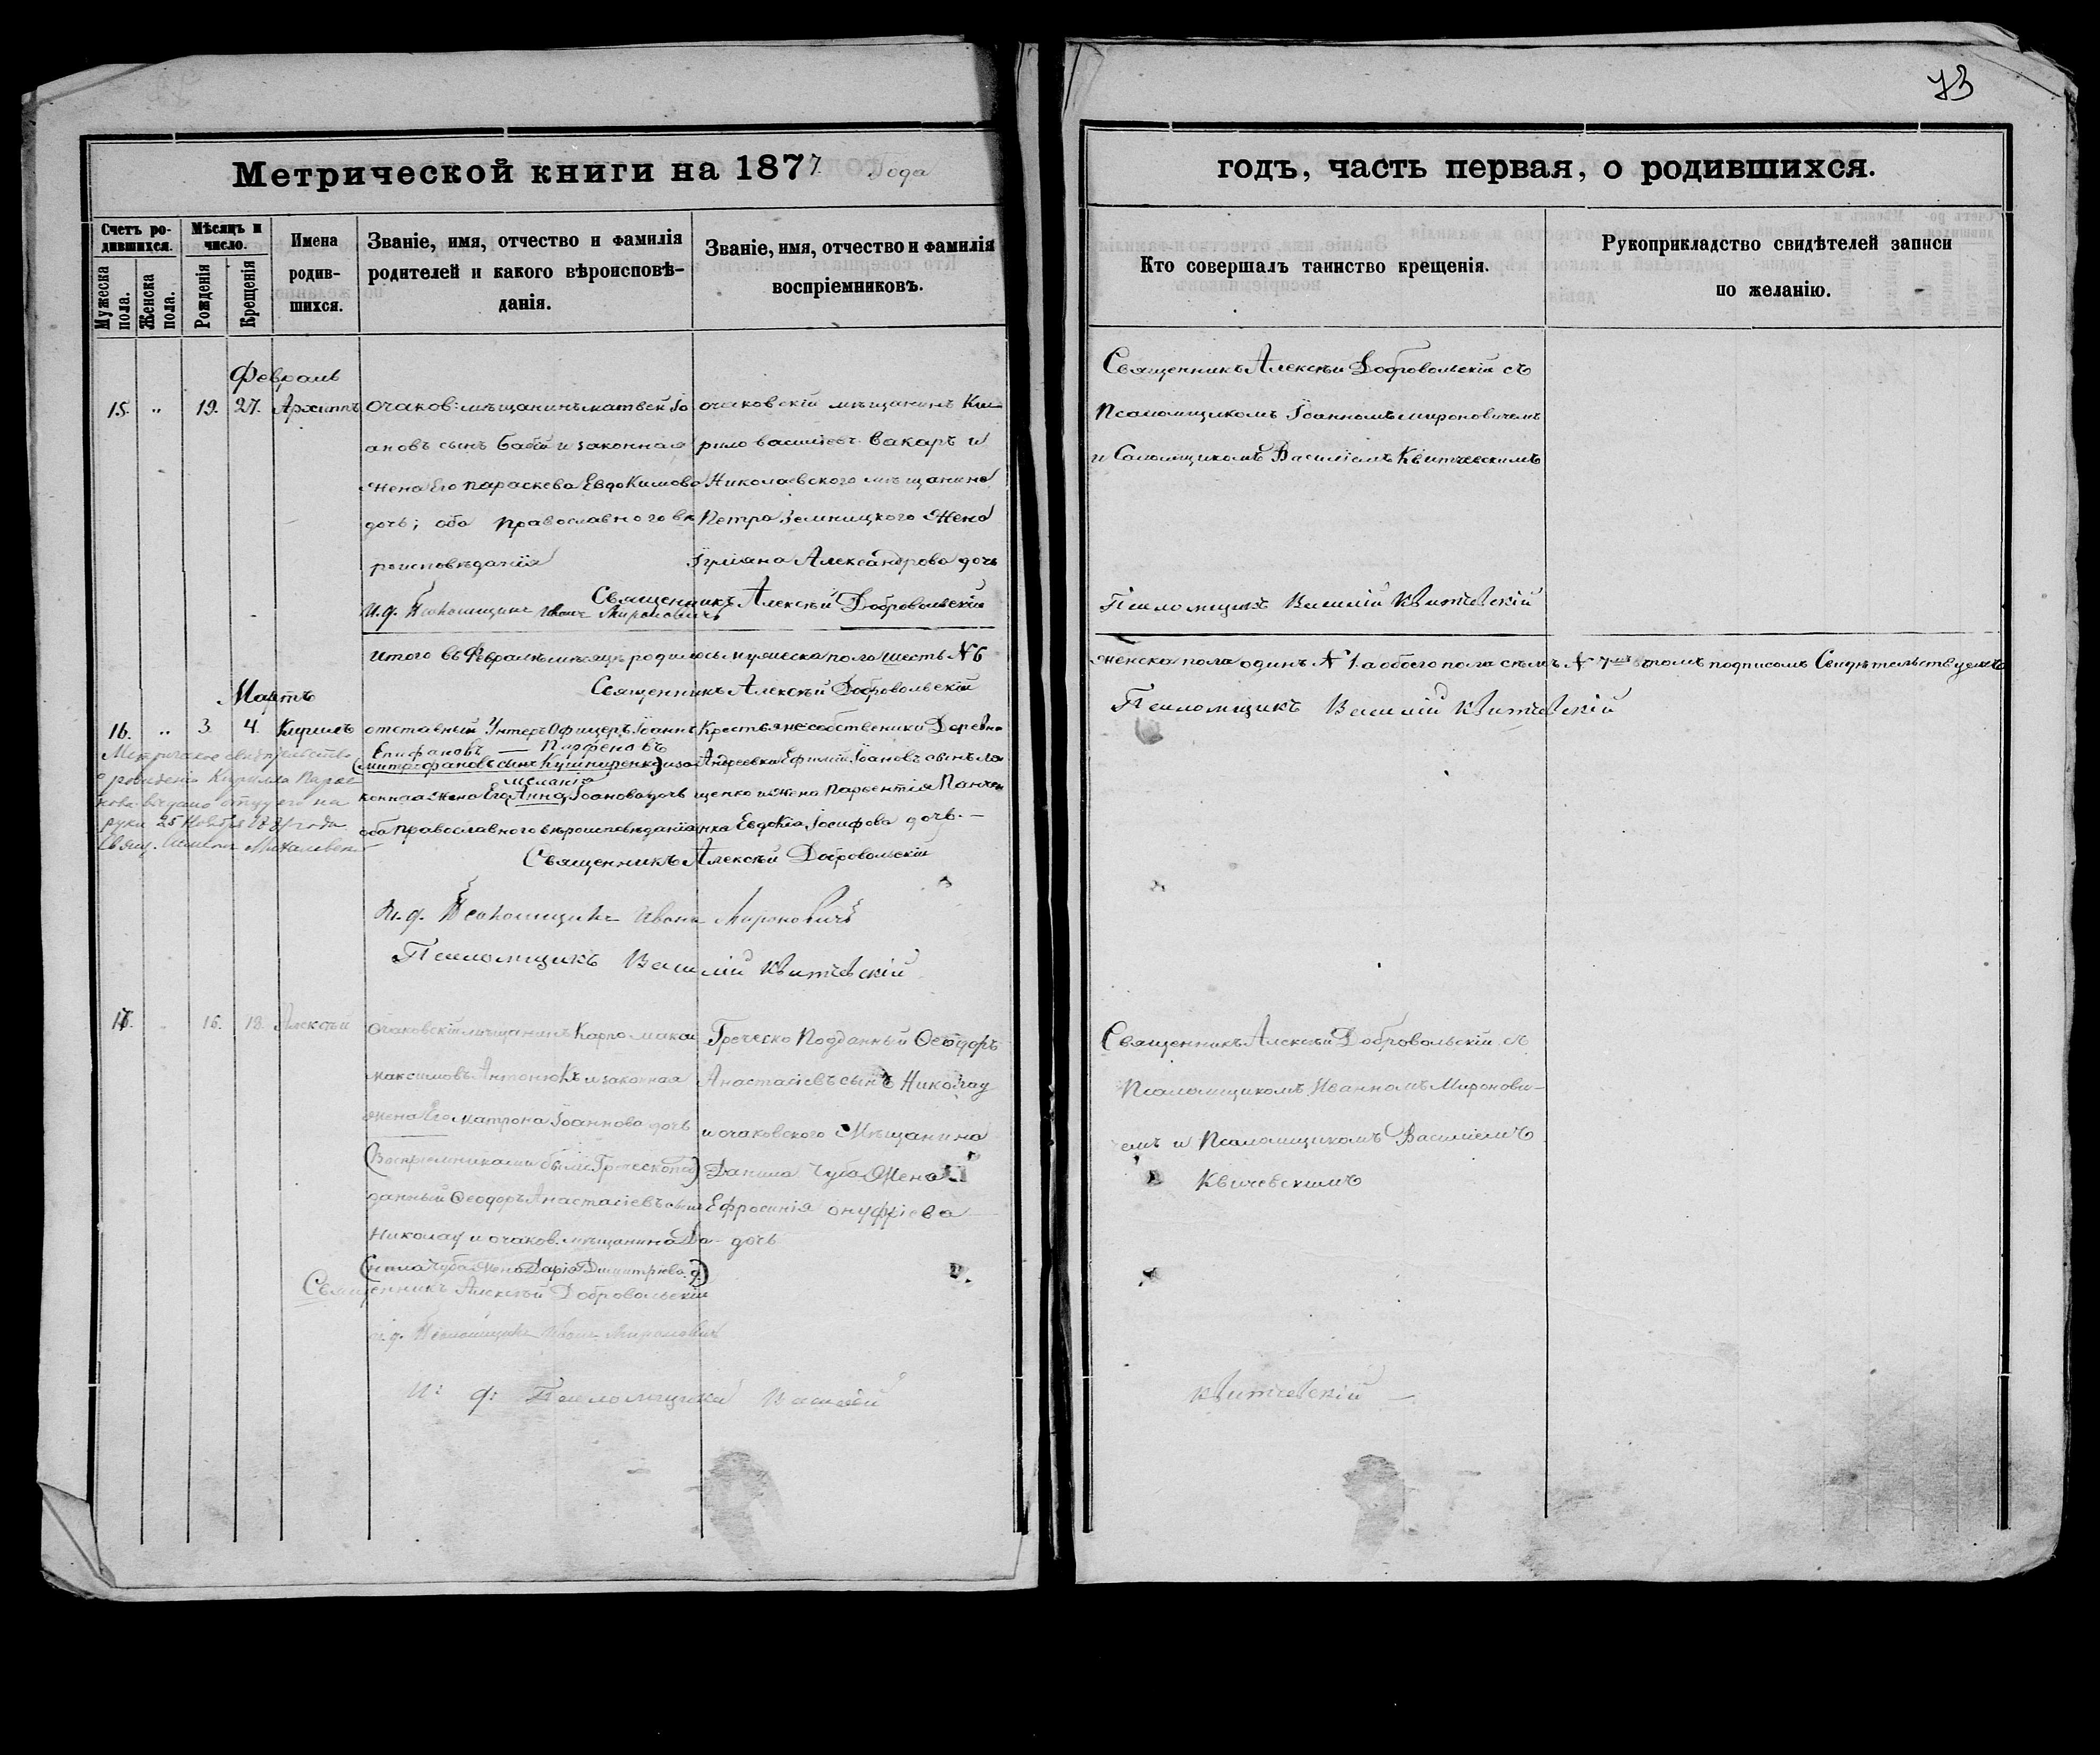 73
Метрической книги на 1877. Года
годъ, часть первая, о родившихся.
Счетъ ро-
дившихся.
Мужеска пола.
Женска пола.
Мѣсяцъ и
число.
Рожденія
Крещенія
Имена
родив-
шихся.
Званіе, имя, отчество и фамилія
родителей и какого вѣроисповѣ-
данія.
Званіе, имя, отчество и фамилія
воспріемниковъ.
Кто совершалъ таинство крещенія.
Рукоприкладство свидѣтелей записи
по желанію.
Февраль
15. " 19. 27. Архиппъ
Очаков: мѣщанинъ матвей Іо
ановъ сынъ Бабій и законная
жена Его параскева Евдокимова
дочь; оба православного вѣ
роисповѣданія
очаковскій мѣщанинъ Ки
рило василіевъ вакаръ и
Николаевского мѣщанина
Петра Земницкого жена
Іуліяна Александрова дочь
Священникъ Алексѣй Добровольскій
И.д. Псаломщика Иванъ Мироновичъ
Священникъ Алексѣй Добровольскій съ
Псаломщикомъ Іоанномъ мироновичемъ
и Саломщикомъ Василіемъ Квитчевскимъ
Псаломщикъ Василій Квитчевскій
Итого въ Февралѣ мѣсяцѣ родилось мужеска пола шесть N 6
женска пола одинъ N 1. а обоего пола семь N 7
Священникъ Алексѣй Добровольскій
Псаломщикъ Василій Квитчевскій
Мартъ
16. " 3. 4. Кирилъ
отставный Унтеръ Офицеръ Іоаннъ
Епифановъ — Парфеновъ
(митрофановъ сынъ Кушниренко) и за
мелания
конная жена Его Анна Іоанова дочь
оба православного вѣроисповѣданія
Крестьяне собственики Деревни
Андреевки Ефимій Іоановъ сынъ
щенко и жена Парфентія Панчен
нка Евдокіа Іосифова дочь. —
Метрическое свидѣтельство
о рожденіи Кирилла Парфе
нова выдано отцу его на
руки 25 Ноября 1881 года
Свящ.
Священникъ Алексѣй Добровольскій
И.д. Псаломщика Иванъ Мироновичъ
Псаломщикъ Василій Квитчевскій
17. 16. 18. Алексѣй
Очаковскій мѣщанинъ Карпо
максимовъ Антонюкъ и законная
жена Его матрона Іоаннова дочь
(Воспріемниками были: Греческопод)
данный Феодоръ Анастасіевъ сынъ
Николау и очаков. мѣщанина Да-
(нила Чуба жена Дарія Димитріева д.)
Греческо Подданный Феодоръ
Анастасіевъ сынъ Николау
и очаковского Мѣщанина
Данила Чуба Жена
Ефросинія онуфріева
дочь
Священникъ Алексѣй Добровольскій
и.д. Псаломщика Иванъ Мироновичъ
И: д: Псаломщика Василій Квитчевскій —
Священникъ Алексѣй Добровольскій съ
Псаломщикомъ Иванномъ Миронови-
чемъ и Псаломщикомъ Василіемъ
Квичевскимъ